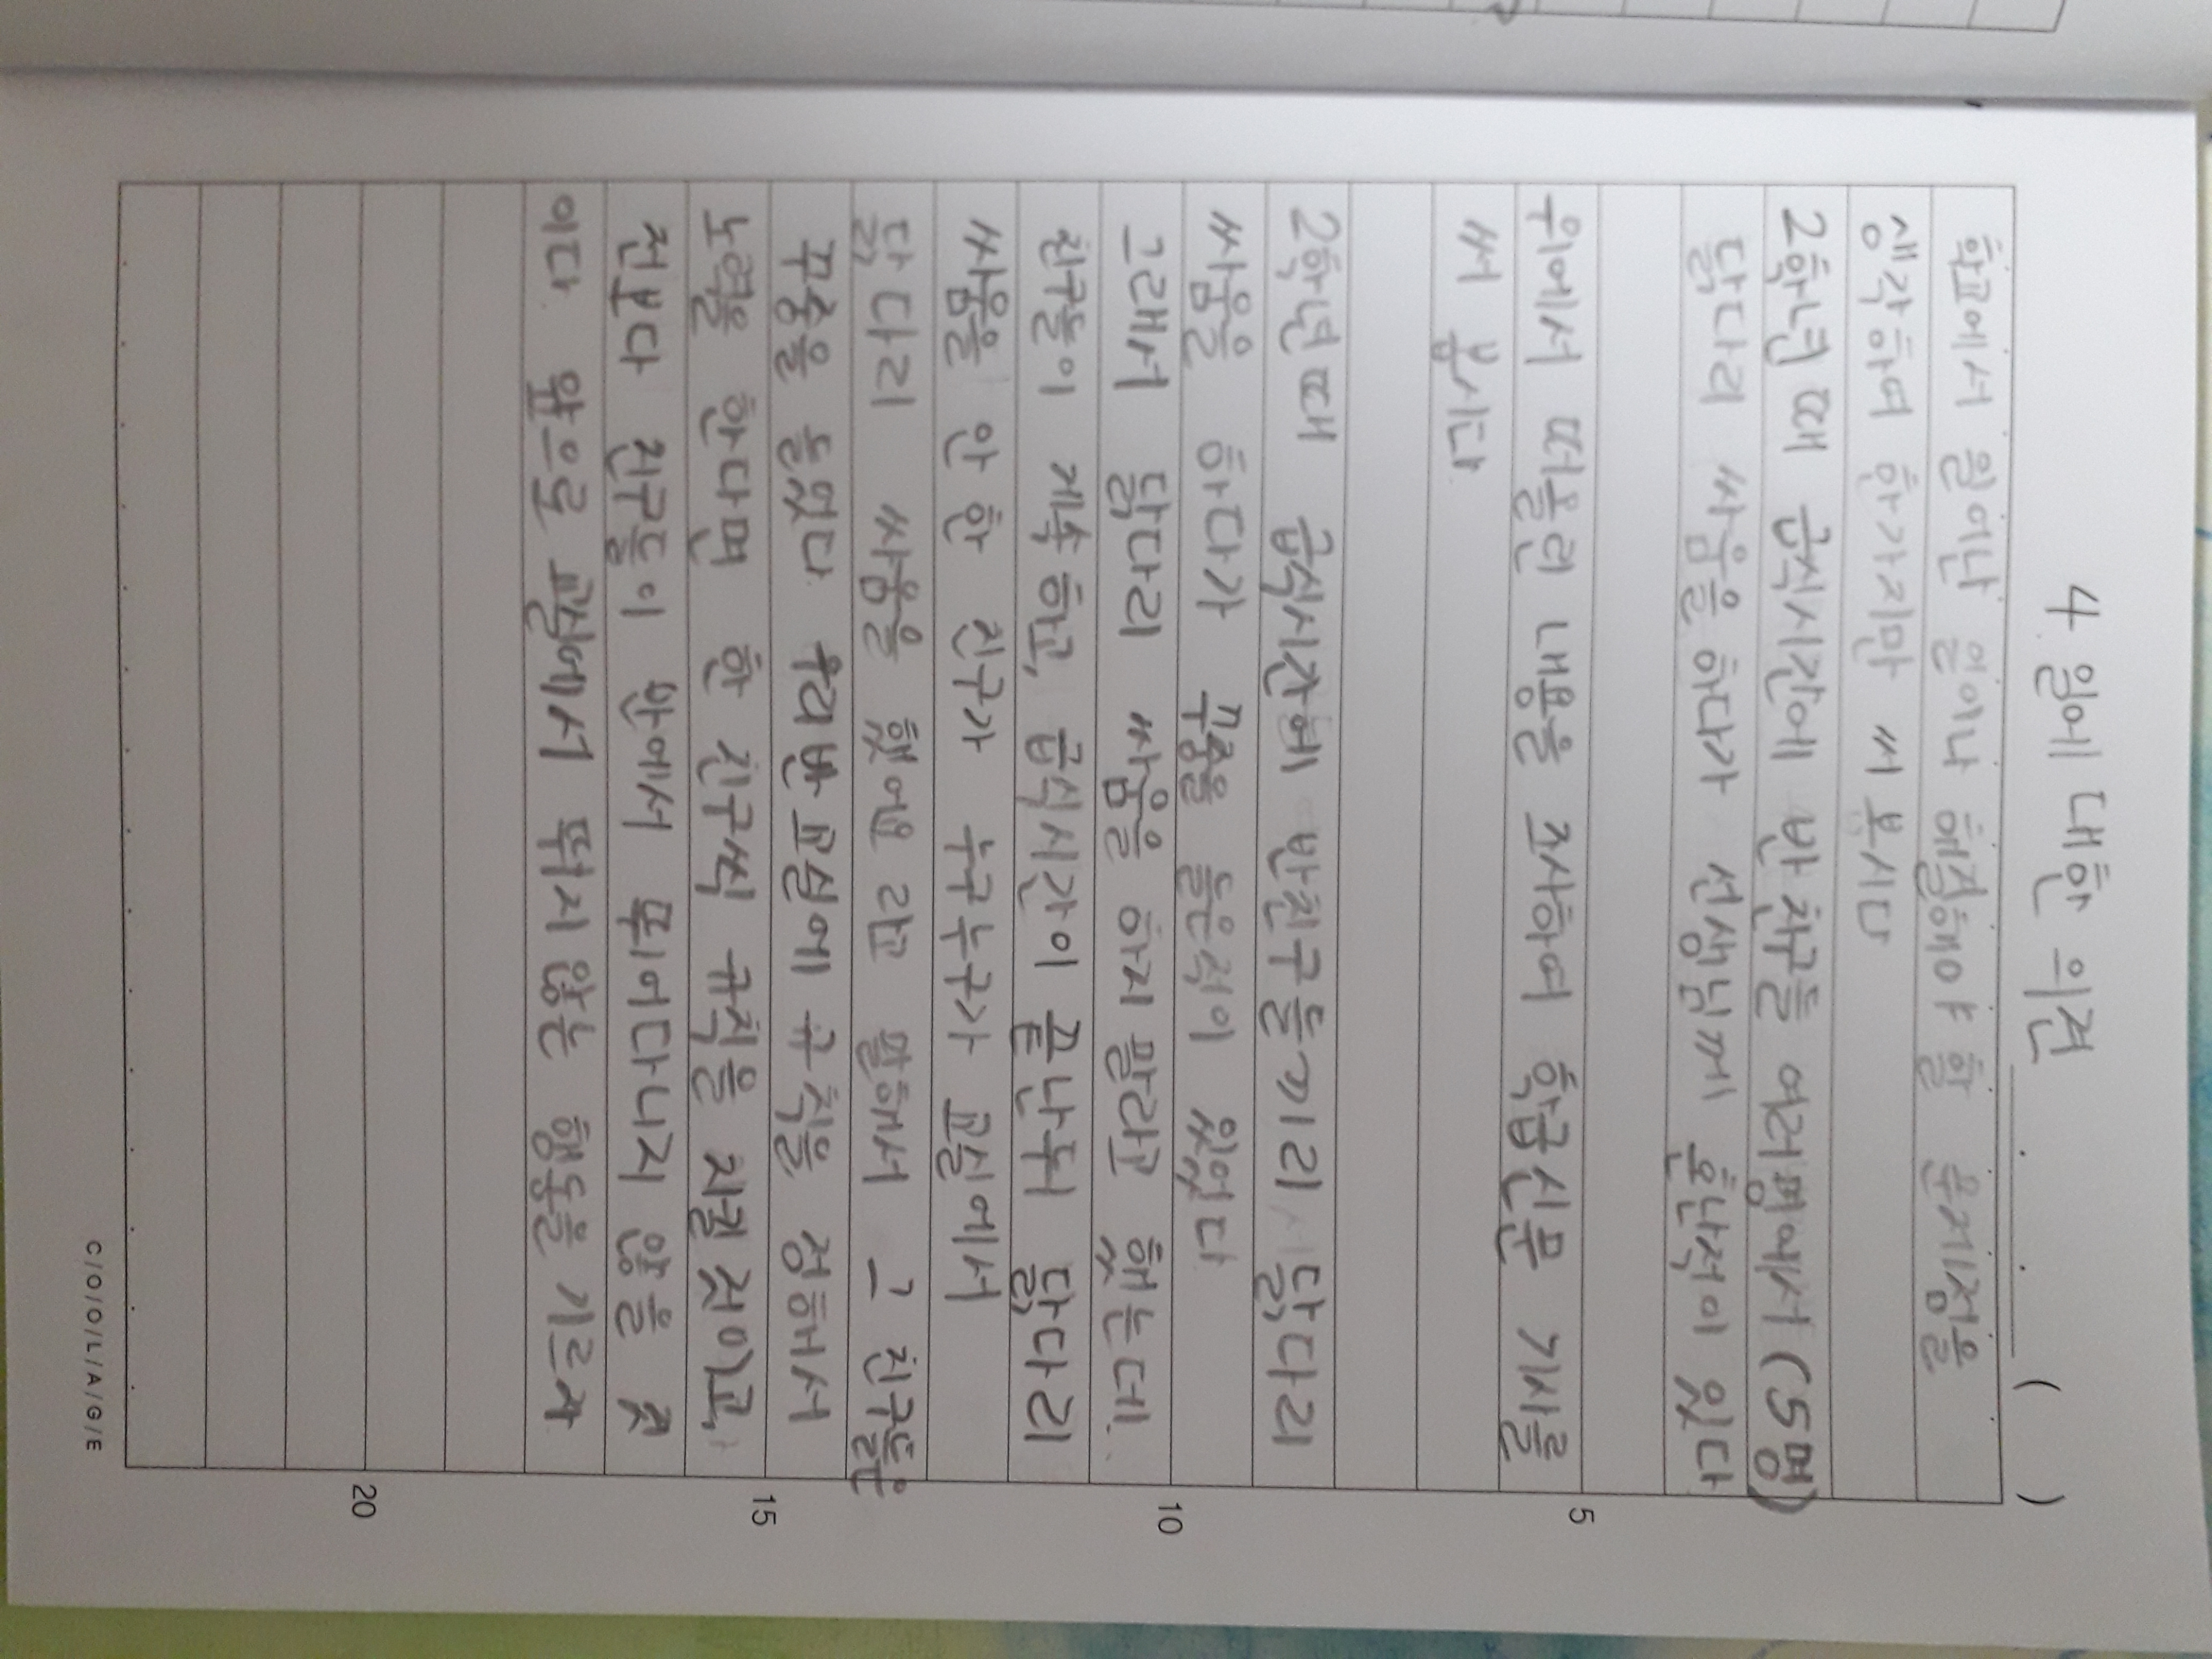 4 일에 대한 의견 ( )
학교에서 일어난 일이나 해결해야 할 문제점을
생각하여 한가지만 써 보시다
2학년 때 급식시간에 반 친구들 여러명에서 (5명)
닭다리 싸움을 하다가 선생님께 혼난적이 있다
5
위에서 떠올린 내용을 조사하여 학급신문 기사를
써 봅시다
2학년때 급식시간에 반친구들끼리 닭다리
싸움을 하다가 꾸중을 들은적이 있었다
10
그래서 닭다리 싸움을 하지 말라고 했는데.
친구들이 계속 하고, 급식시간이 끝난뒤 닭다리
싸움을 안 한 친구가 누구누구가 교실에서
닭다리 싸움을 했어요 라고 말해서 그 친구들은
꾸중을 들었다. 우리반 교실에 규칙을 정해서
15
노력을 한다면 한 친구씩 규칙을 지킬 것이고,
전보다 친구들이 반에서 뛰어다니지 않을 것
이다. 앞으로 교실에서 뛰지 않는 행동을 기르자
20
C/O/O/L/A/G/E